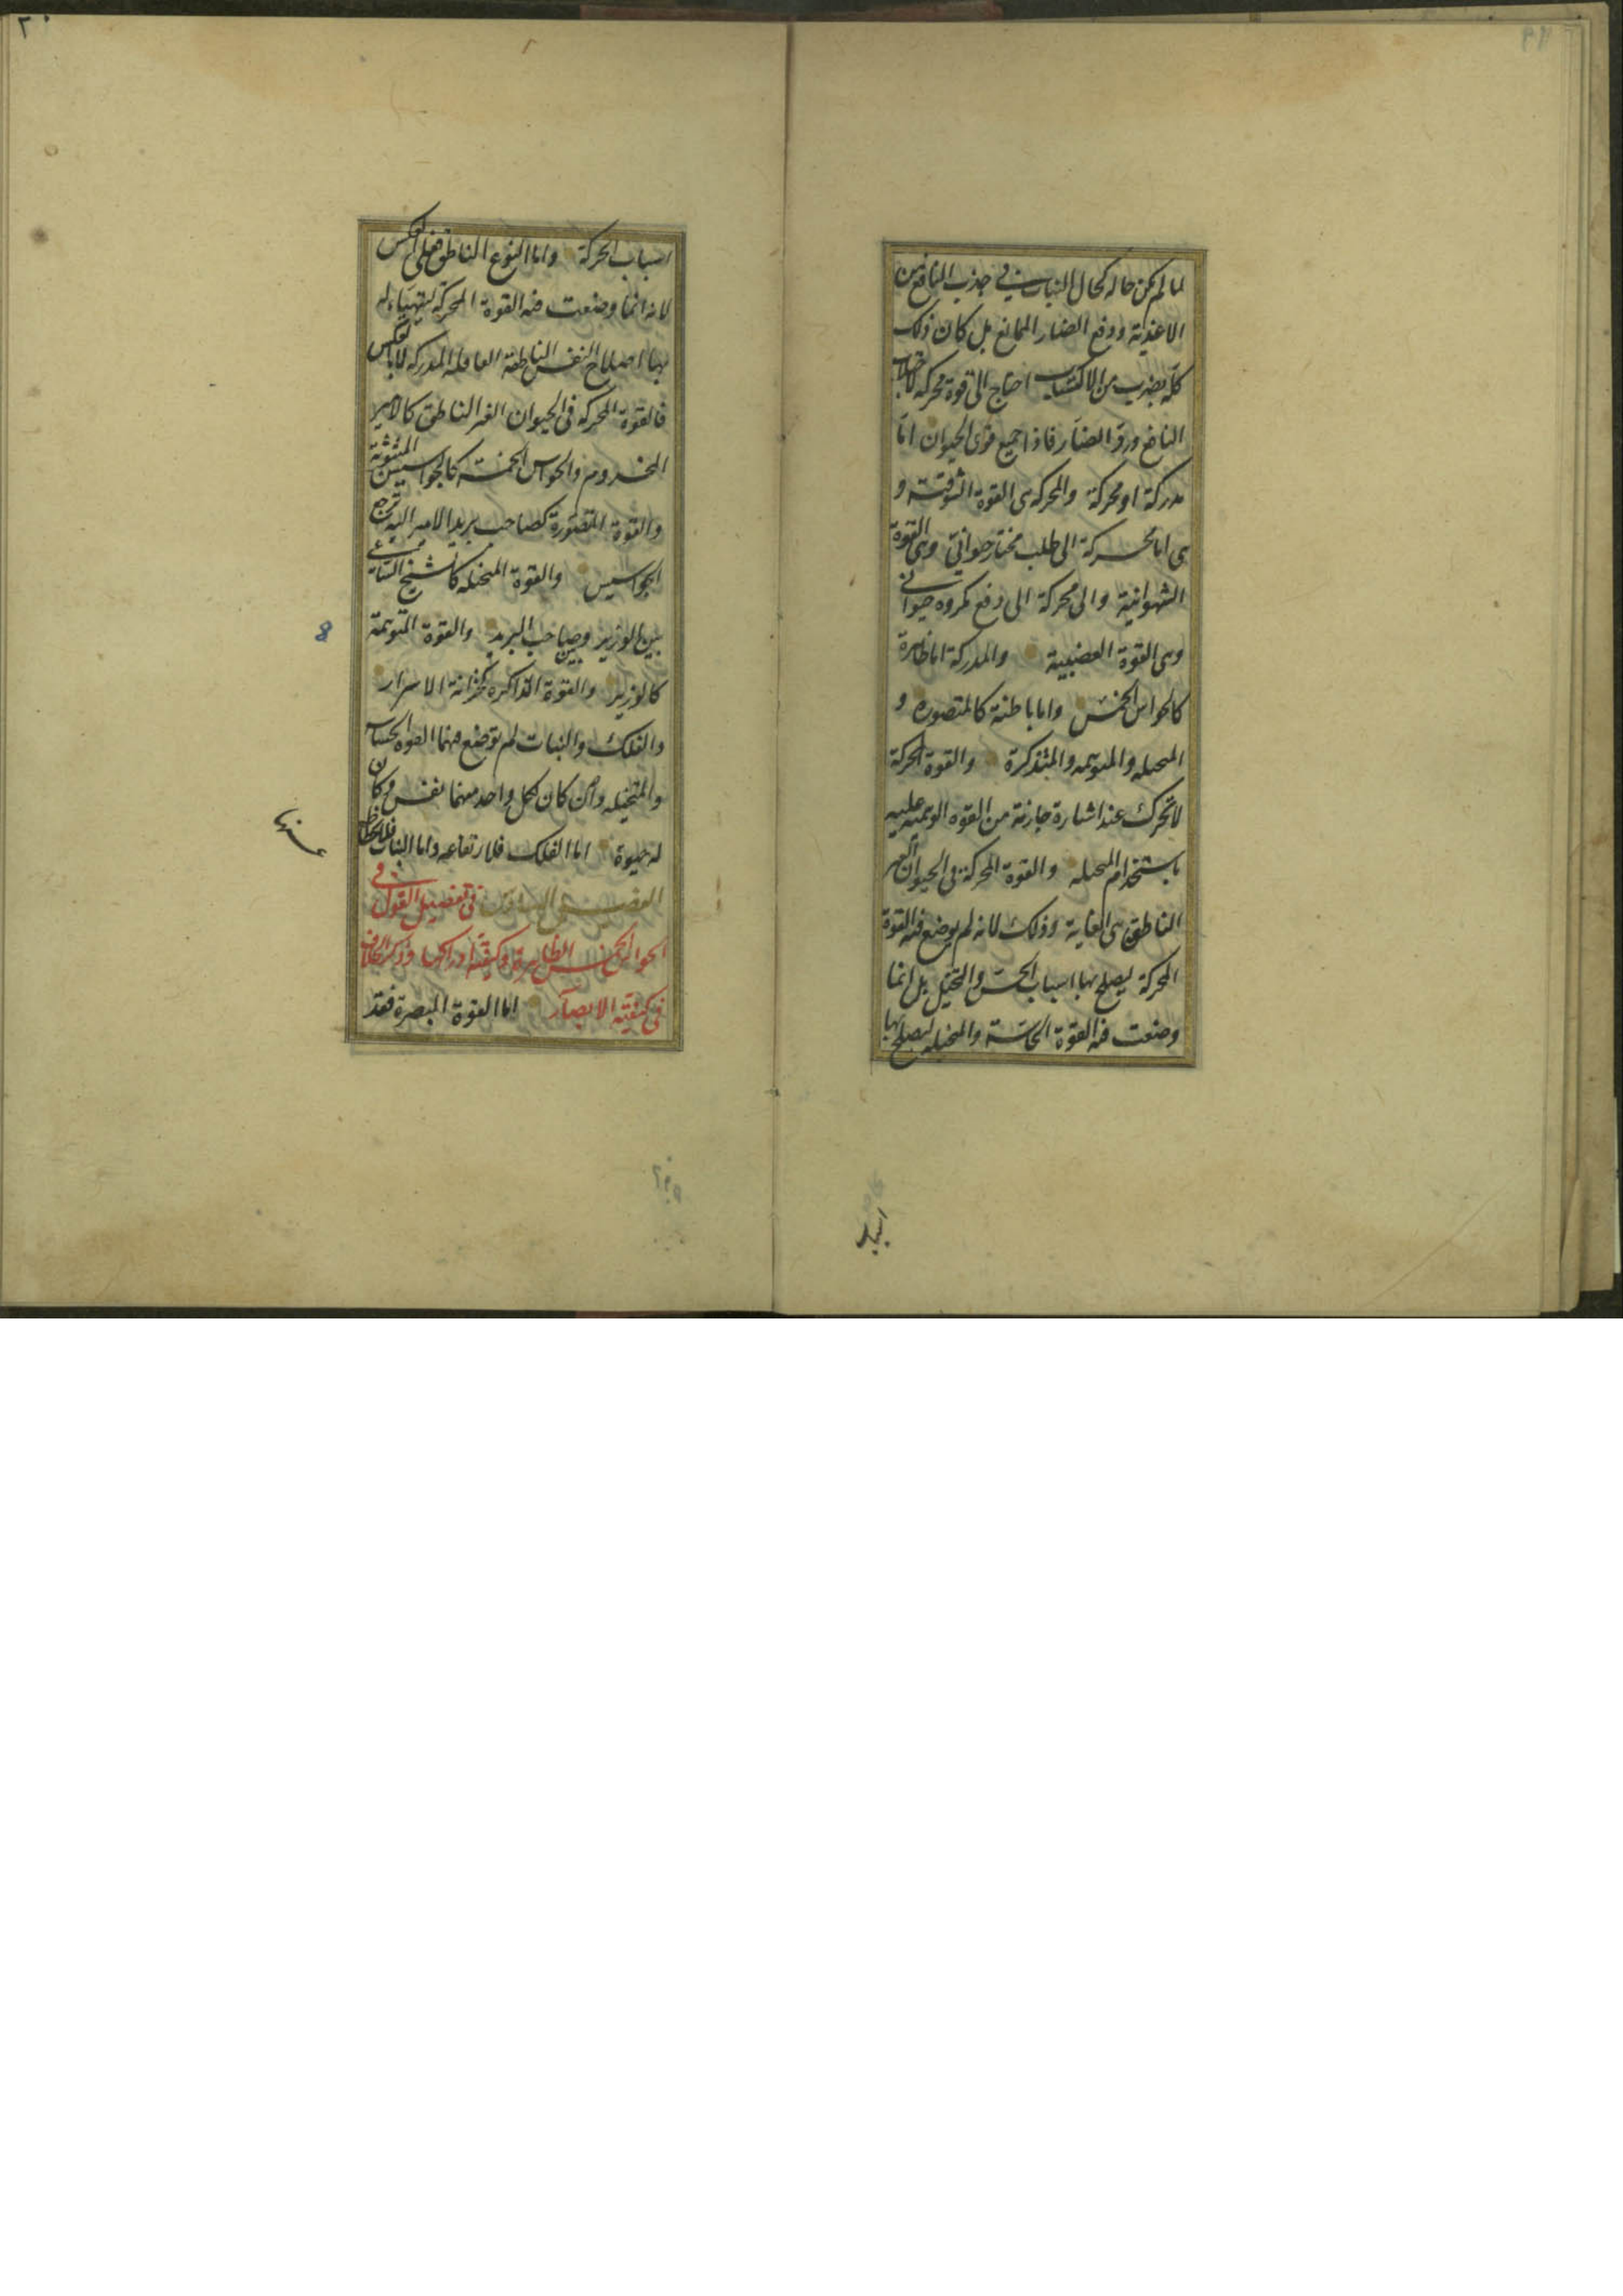 لما لم يكن حاله كحال النبات في جذب المنافع من
الاغذية ودفع الضار الممانع بل كان ذلك
كله بضرب من الاكتساب احتاج الى قوة محركة لاجتلاب
النافع ورد الضار فاذا جميع قوى الحيوان اما
مدركة او محركة والمحركة هي القوة الشوقية و
هي اما محركة الى طلب مختار حيواني وهي القوة
الشهوانية والى محركة الى دفع مكروه حيواني
وهي القوة الغضبية والمدركة اما ظاهرة
كالحواس الخمس واما باطنة كالمتصورة و
المتخيله والمتوهمه والمتذكرة والقوة المحركة
لا تحرك عند اشارة جازمة من القوه الوهميه عليه
باستخدام المتخيله والقوة المحركة في الحيوان الغير
الناطق هي الغاية وذلك لانه لم يوضع فيه القوة
المحركة ليصلح بها اسباب الحس والتخيل بل انما
وضعت فيه القوة الحاسة والمتخيله ليصلح بها
اسباب
٢٠
اسباب الحركة واما النوع الناطق فعلى العكس
لانه انما وضعت فيه القوة المحركة ليتهياء له
بها اصلاح النفس الناطقة العاقلة المدركه لا بالعكس
فالقوة المحركه في الحيوان الغير الناطق كالامير
المخدوم والحواس الخمسة كالجواسيس المبثوثة
والقوة المتصورة كصاحب بريد الامير اليه يرجع
الجواسيس والقوة المتخيله كالشيخ الساعي
بين الوزير وبين صاحب البريد والقوة المتوهمة
كالوزير والقوة الذاكره كخزانة الاسرار
والفلك والنبات لم توضع فيهما القوه الحساسه
والمتخيله وان كان لكل واحد منهما نفس وكان
له حيوة اما الفلك فلارتفاعه واما النبات فلانحطاطه
عنها
الفصل السادس في تفصيل القول في
الحواس الخمس الظاهرة وكيفية ادراكها وذكر الخلاف
في كيفية الابصار اما القوة المبصرة فقد
8